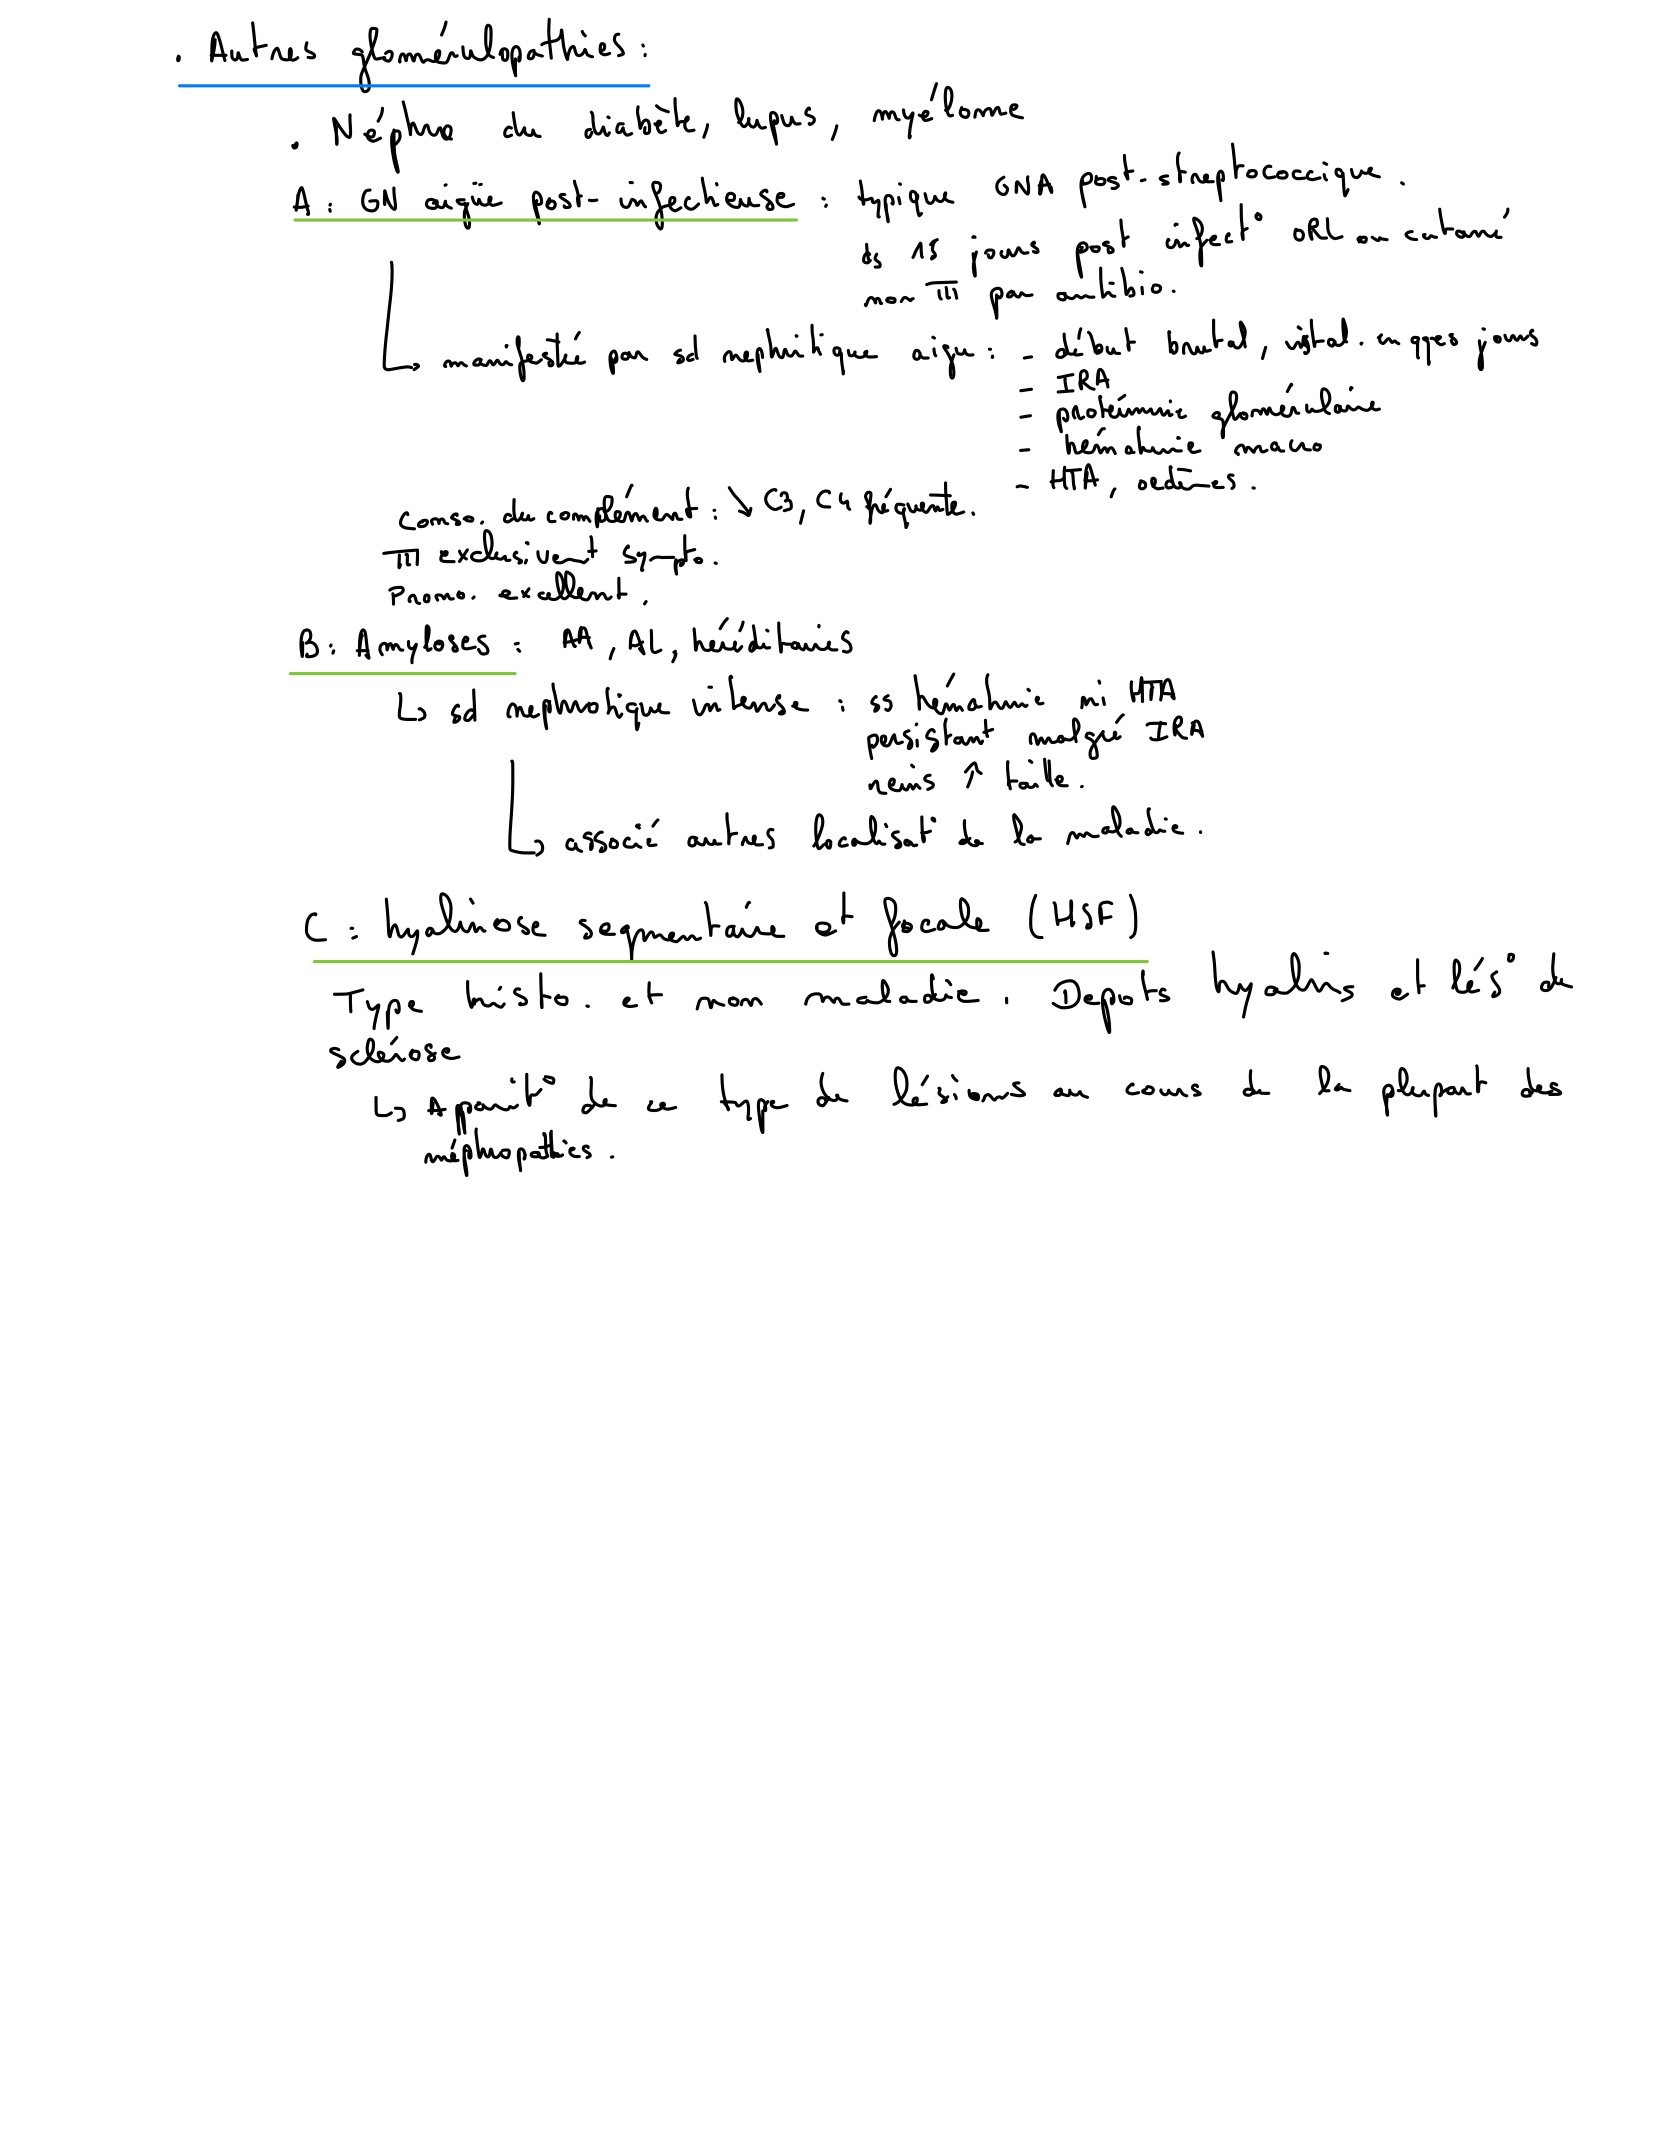 . Autres glomérulopathies :
. Néphro du diabète, lupus, myélome
A : GN aigüe post-infectieuse : typique GNA post-streptococcique.
ds 15 jours post infect° ORL ou cutané
non TTT par antibio.
↳ manifesté par sd nephritique aigu : - début brutal, instal. en qqes jours
- IRA
- protéinurie glomérulaire
- hématurie macro
- HTA, oedèmes.
Conso. du complément : ↘ C3, C4 fréquente.
TTT exclusivent sympto.
Prono. excellent.
B : Amyloses : AA, AL, héréditaires
↳ sd nephrotique intense : ss hématurie ni HTA
persistant malgré IRA
reins ↑ taille.
↳ associé autres localisat° de la maladie.
C : hyalinose segmentaire et focale (HSF)
Type histo. et non maladie. Depots hyalins et lés° de
sclérose
↳ Apparit° de ce type de lésions au cours de la plupart des
néphropathies.